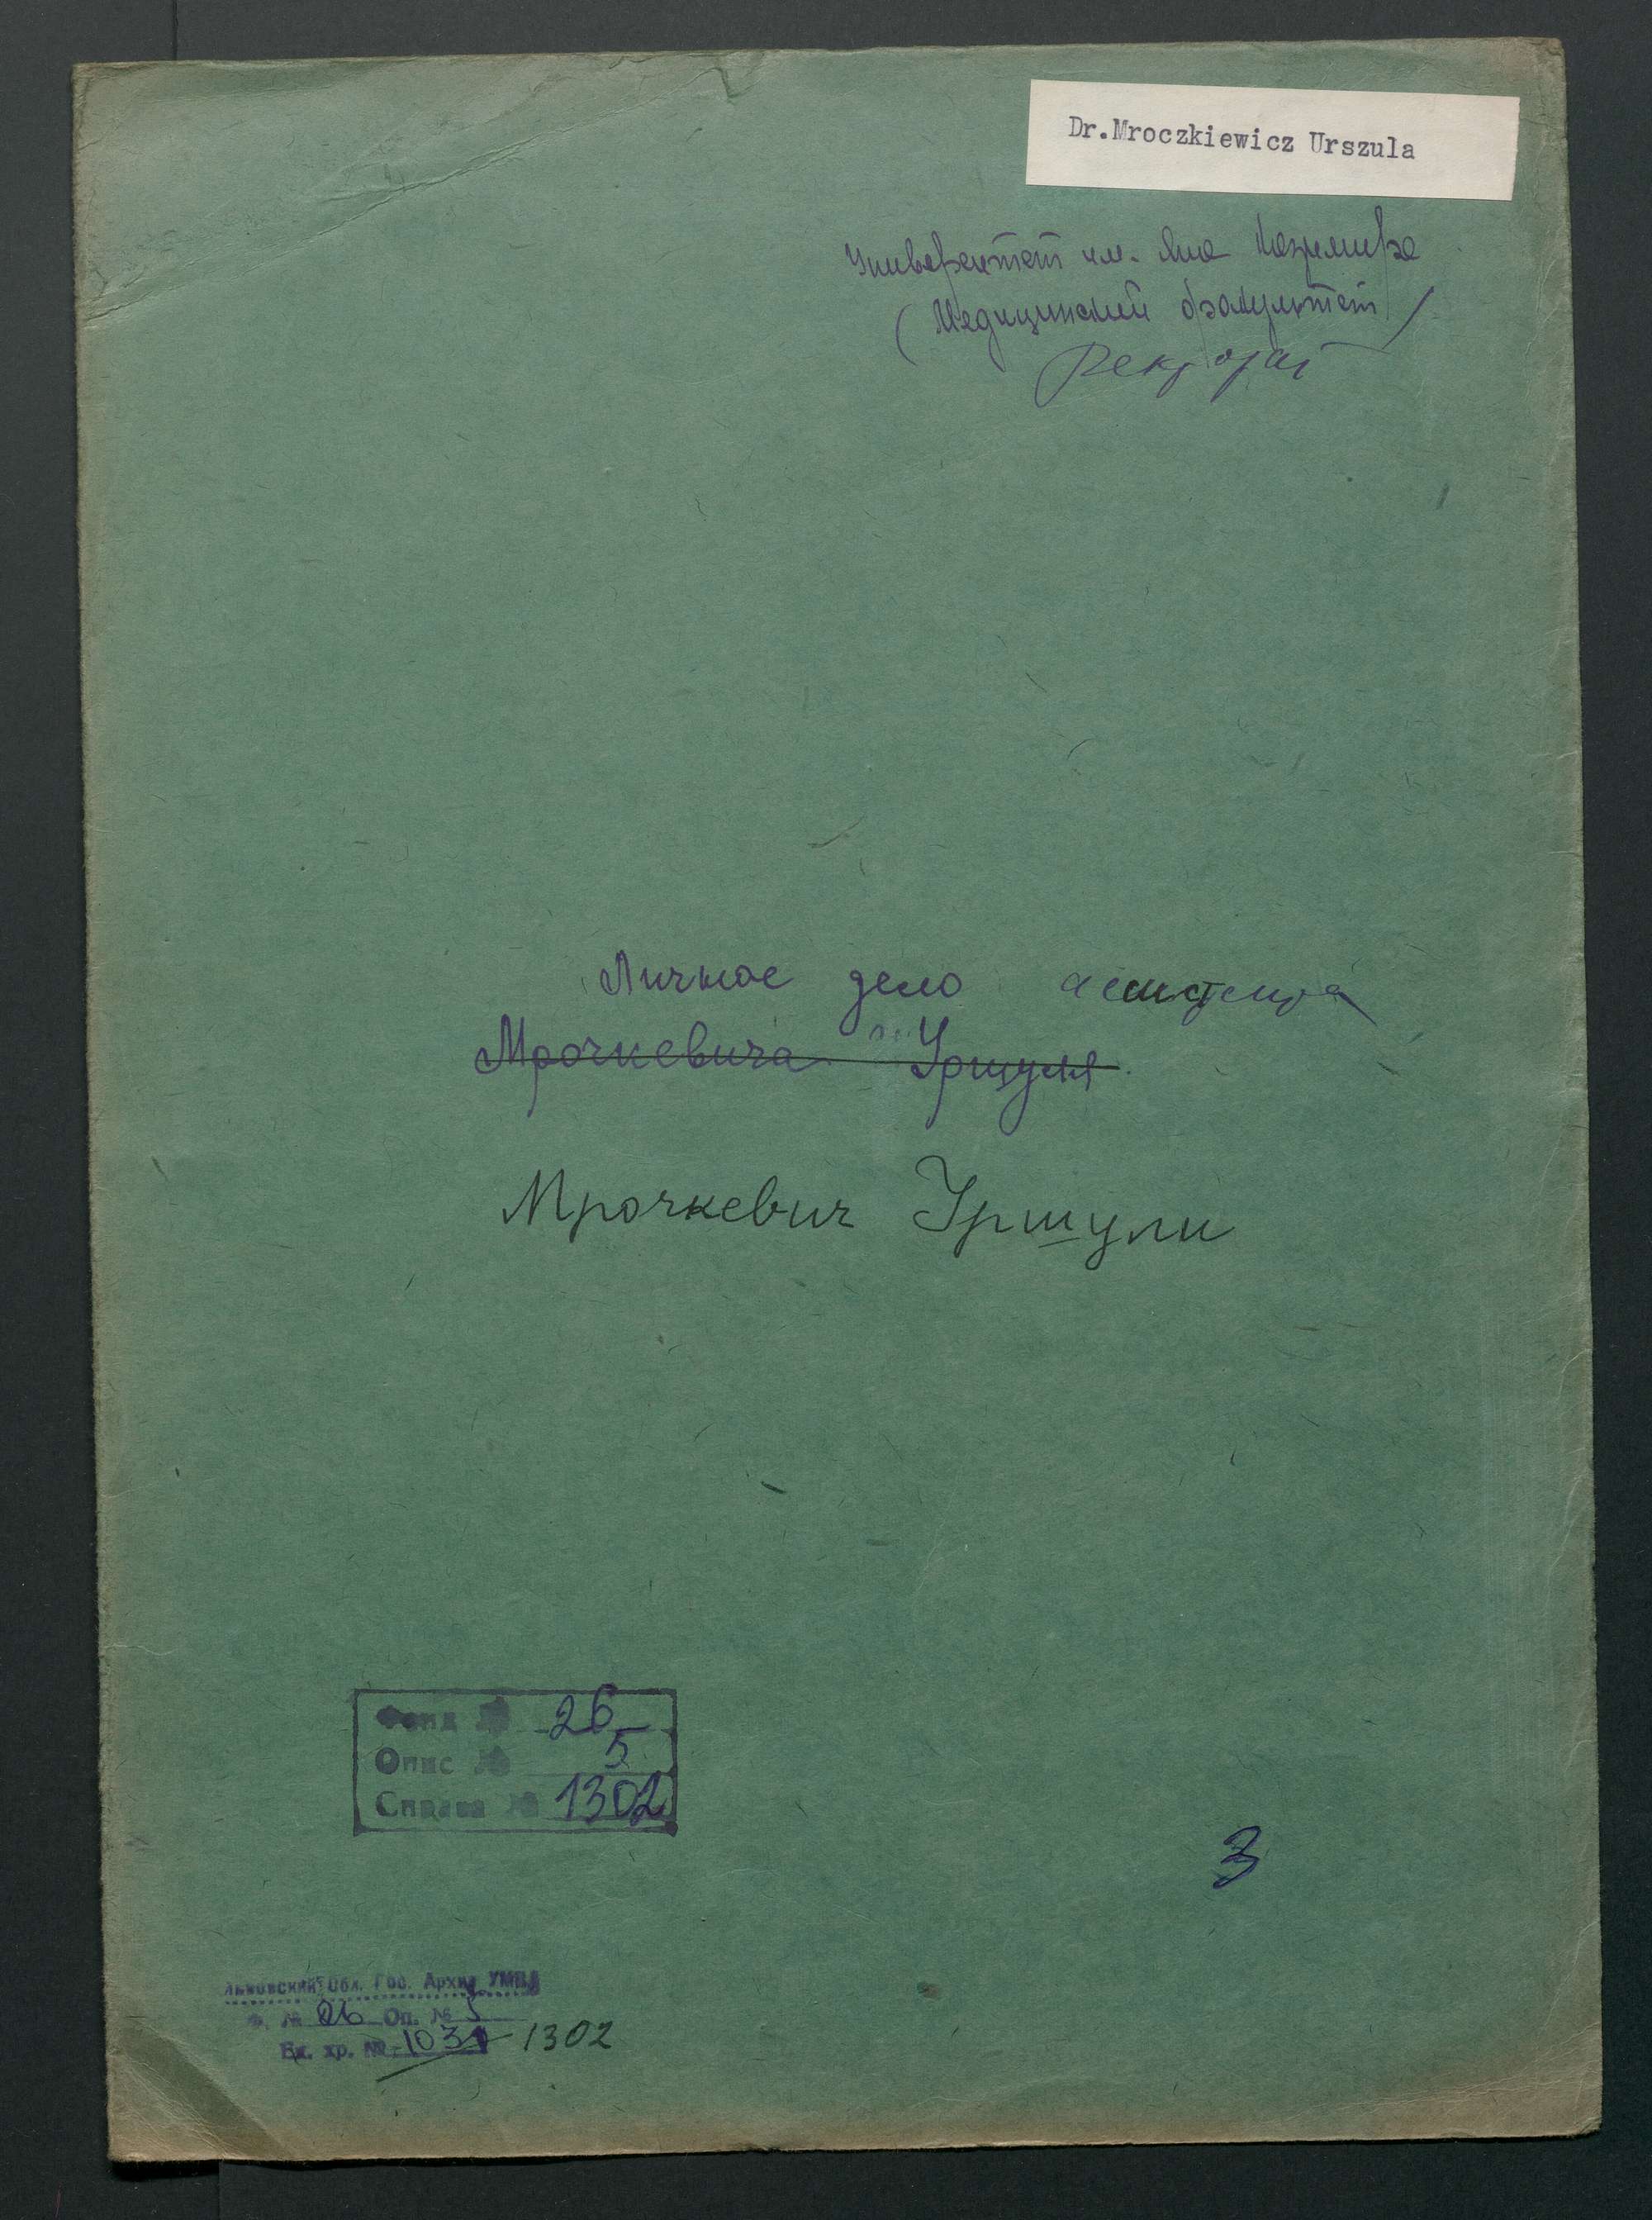 Dr.Mroczkiewicz Urszula
Университет им. Яна Казимира
(Медицинский факультет)
Ректорат
Личное дело ассистента
Мрочкевича Уршуля
Мрочкевич Уршули
Фонд № 26
Опис № 5
Справа № 1302
3
Львовский Обл. Гос. Архив УМВД
Ф. № 26 Оп. № 5
Ед. хр. № 1031 1302